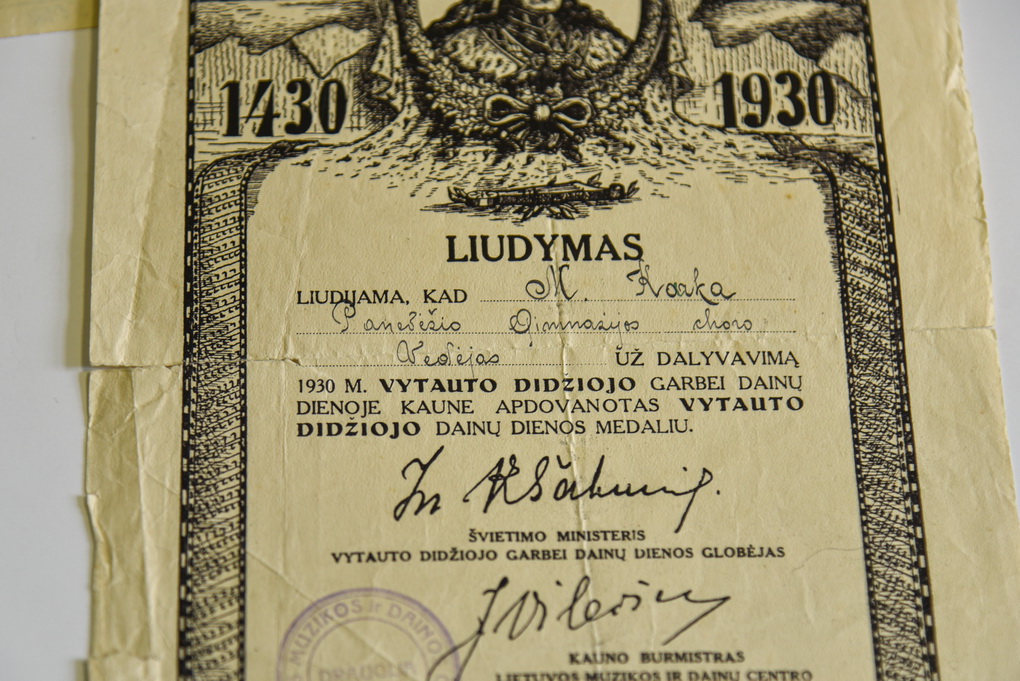 1430 1930
LIUDYMAS
LIUDIJAMA, KAD M. Karka
Panevėžio Gimnazijos choro
Vedėjas UŽ DALYVAVIMĄ
1930 M. VYTAUTO DIDŽIOJO GARBEI DAINŲ
DIENOJE KAUNE APDOVANOTAS VYTAUTO
DIDŽIOJO DAINŲ DIENOS MEDALIU.
ŠVIETIMO MINISTERIS
VYTAUTO DIDŽIOJO GARBEI DAINŲ DIENOS GLOBĖJAS
MUZIKOS ir DAINO
DRAUGIJA
KAUNO BURMISTRAS
LIETUVOS MUZIKOS IR DAINŲ CENTRO